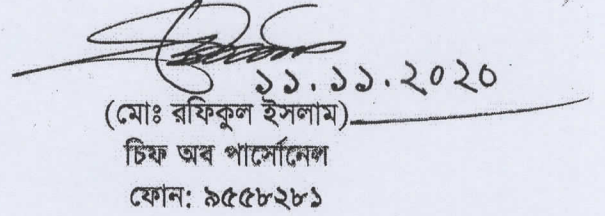 ১১.১১.২০২০
(মোঃ রফিকুল ইসলাম)
চিফ অব পার্সোনেল
ফোন: ৯৫৫৮২৮১